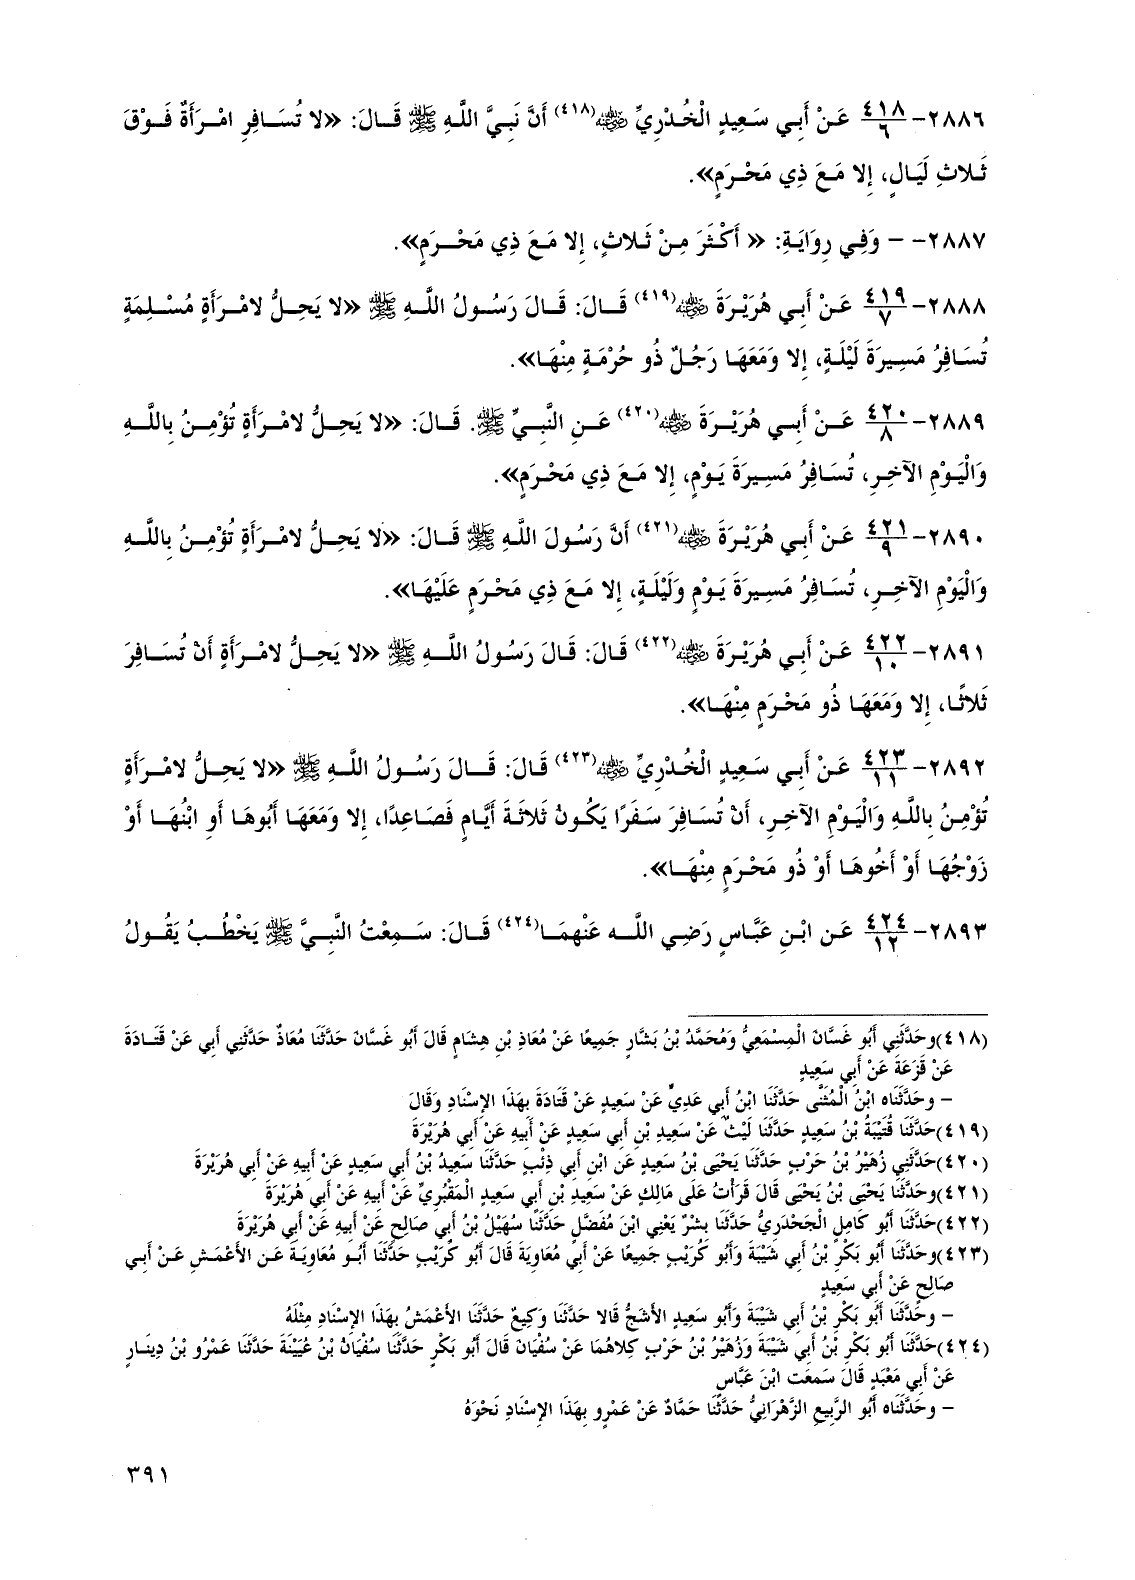 ٢٨٨٦- ٤١٨/٦ عَـنْ أَبِـي سَـعِيدٍ الْخُـدْرِيِّ ﷺ(٤١٨) أَنَّ نَبِـيَّ اللَّـهِ ﷺ قَـالَ: «لا تُسَـافِرِ امْـرَأَةٌ فَـوْقَ
ثَـلاثِ لَيَـالٍ، إِلا مَـعَ ذِي مَحْـرَمٍ».
٢٨٨٧- – وَفِـي رِوَايَـةٍ: « أَكْـثَرَ مِـنْ ثَـلاثٍ، إِلا مَـعَ ذِي مَحْـرَمٍ».
٢٨٨٨- ٤١٩/٧ عَـنْ أَبِـي هُرَيْـرَةَ ﷺ(٤١٩) قَـالَ: قَـالَ رَسُـولُ اللَّـهِ ﷺ «لا يَحِـلُّ لامْـرَأَةٍ مُسْـلِمَةٍ
تُسَـافِرُ مَسِـيرَةَ لَيْلَـةٍ، إِلا وَمَعَهَـا رَجُـلٌ ذُو حُرْمَـةٍ مِنْهَـا».
٢٨٨٩- ٤٢٠/٨ عَـنْ أَبِـي هُرَيْـرَةَ ﷺ(٤٢٠) عَـنِ النَّبِـيِّ ﷺ. قَـالَ: «لا يَحِـلُّ لامْـرَأَةٍ تُؤْمِـنُ بِاللَّـهِ
وَالْيَـوْمِ الآخِـرِ، تُسَـافِرُ مَسِـيرَةَ يَـوْمٍ، إِلا مَـعَ ذِي مَحْـرَمٍ».
٢٨٩٠- ٤٢١/٩ عَـنْ أَبِـي هُرَيْـرَةَ ﷺ(٤٢١) أَنَّ رَسُـولَ اللَّـهِ ﷺ قَـالَ: «لا يَحِـلُّ لامْـرَأَةٍ تُؤْمِـنُ بِاللَّـهِ
وَالْيَـوْمِ الآخِـرِ، تُسَـافِرُ مَسِـيرَةَ يَـوْمٍ وَلَيْلَـةٍ، إِلا مَـعَ ذِي مَحْـرَمٍ عَلَيْهَـا».
٢٨٩١- ٤٢٢/١٠ عَـنْ أَبِـي هُرَيْـرَةَ ﷺ(٤٢٢) قَـالَ: قَـالَ رَسُـولُ اللَّـهِ ﷺ «لا يَحِـلُّ لامْـرَأَةٍ أَنْ تُسَـافِرَ
ثَلاثًـا، إِلا وَمَعَهَـا ذُو مَحْـرَمٍ مِنْهَـا».
٢٨٩٢- ٤٢٣/١١ عَـنْ أَبِـي سَـعِيدٍ الْخُـدْرِيِّ ﷺ(٤٢٣) قَـالَ: قَـالَ رَسُـولُ اللَّـهِ ﷺ «لا يَحِـلُّ لامْـرَأَةٍ
تُؤْمِـنُ بِاللَّـهِ وَالْيَـوْمِ الآخِـرِ، أَنْ تُسَـافِرَ سَـفَرًا يَكُـونُ ثَلاثَـةَ أَيَّـامٍ فَصَـاعِدًا، إِلا وَمَعَهَـا أَبُوهَـا أَوِ ابْنُهَـا أَوْ
زَوْجُهَـا أَوْ أَخُوهَـا أَوْ ذُو مَحْـرَمٍ مِنْهَـا».
٢٨٩٣- ٤٢٤/١٢ عَـنِ ابْـنِ عَبَّـاسٍ رَضِـي اللَّـه عَنْهمَـا(٤٢٤) قَـالَ: سَـمِعْتُ النَّبِـيَّ ﷺ يَخْطُـبُ يَقُـولُ
(٤١٨)وحَدَّثَنِي أَبُو غَسَّانَ الْمِسْمَعِيُّ وَمُحَمَّدُ بْنُ بَشَّارٍ جَمِيعًا عَنْ مُعَاذِ بْنِ هِشَامٍ قَالَ أَبُو غَسَّانَ حَدَّثَنَا مُعَاذٌ حَدَّثَنِي أَبِي عَنْ قَتَادَةَ
عَنْ قَزَعَةَ عَنْ أَبِي سَعِيدٍ
– وحَدَّثَنَاه ابْنُ الْمُثَنَّى حَدَّثَنَا ابْنُ أَبِي عَدِيٍّ عَنْ سَعِيدٍ عَنْ قَتَادَةَ بِهَذَا الإِسْنَادِ وَقَالَ
(٤١٩)حَدَّثَنَا قُتَيْبَةُ بْنُ سَعِيدٍ حَدَّثَنَا لَيْثٌ عَنْ سَعِيدِ بْنِ أَبِي سَعِيدٍ عَنْ أَبِيهِ عَنْ أَبِي هُرَيْرَةَ
(٤٢٠)حَدَّثَنِي زُهَيْرُ بْنُ حَرْبٍ حَدَّثَنَا يَحْيَى بْنُ سَعِيدٍ عَنِ ابْنِ أَبِي ذِئْبٍ حَدَّثَنَا سَعِيدُ بْنُ أَبِي سَعِيدٍ عَنْ أَبِيهِ عَنْ أَبِي هُرَيْرَةَ
(٤٢١)وحَدَّثَنَا يَحْيَى بْنُ يَحْيَى قَالَ قَرَأْتُ عَلَى مَالِكٍ عَنْ سَعِيدِ بْنِ أَبِي سَعِيدٍ الْمَقْبُرِيِّ عَنْ أَبِيهِ عَنْ أَبِي هُرَيْرَةَ
(٤٢٢)حَدَّثَنَا أَبُو كَامِلٍ الْجَحْدَرِيُّ حَدَّثَنَا بِشْرٌ يَعْنِي ابْنَ مُفَضَّلٍ حَدَّثَنَا سُهَيْلُ بْنُ أَبِي صَالِحٍ عَنْ أَبِيهِ عَنْ أَبِي هُرَيْرَةَ
(٤٢٣)وحَدَّثَنَا أَبُو بَكْرِ بْنُ أَبِي شَيْبَةَ وَأَبُو كُرَيْبٍ جَمِيعًا عَنْ أَبِي مُعَاوِيَةَ قَالَ أَبُو كُرَيْبٍ حَدَّثَنَا أَبُـو مُعَاوِيَـةَ عَـنِ الأَعْمَـشِ عَـنْ أَبِـي
صَالِحٍ عَنْ أَبِي سَعِيدٍ
– وحَدَّثَنَا أَبُو بَكْرِ بْنُ أَبِي شَيْبَةَ وَأَبُو سَعِيدٍ الأَشَجُّ قَالا حَدَّثَنَا وَكِيعٌ حَدَّثَنَا الأَعْمَشُ بِهَذَا الإِسْنَادِ مِثْلَهُ
(٤٢٤)حَدَّثَنَا أَبُو بَكْرِ بْنُ أَبِي شَيْبَةَ وَزُهَيْرُ بْنُ حَرْبٍ كِلاهُمَا عَنْ سُفْيَانَ قَالَ أَبُو بَكْرٍ حَدَّثَنَا سُفْيَانُ بْنُ عُيَيْنَةَ حَدَّثَنَا عَمْرُو بْنُ دِينَـارٍ
عَنْ أَبِي مَعْبَدٍ قَالَ سَمِعْتُ ابْنَ عَبَّاسٍ
– وحَدَّثَنَاه أَبُو الرَّبِيعِ الزَّهْرَانِيُّ حَدَّثَنَا حَمَّادٌ عَنْ عَمْرٍو بِهَذَا الإِسْنَادِ نَحْوَهُ
٣٩١